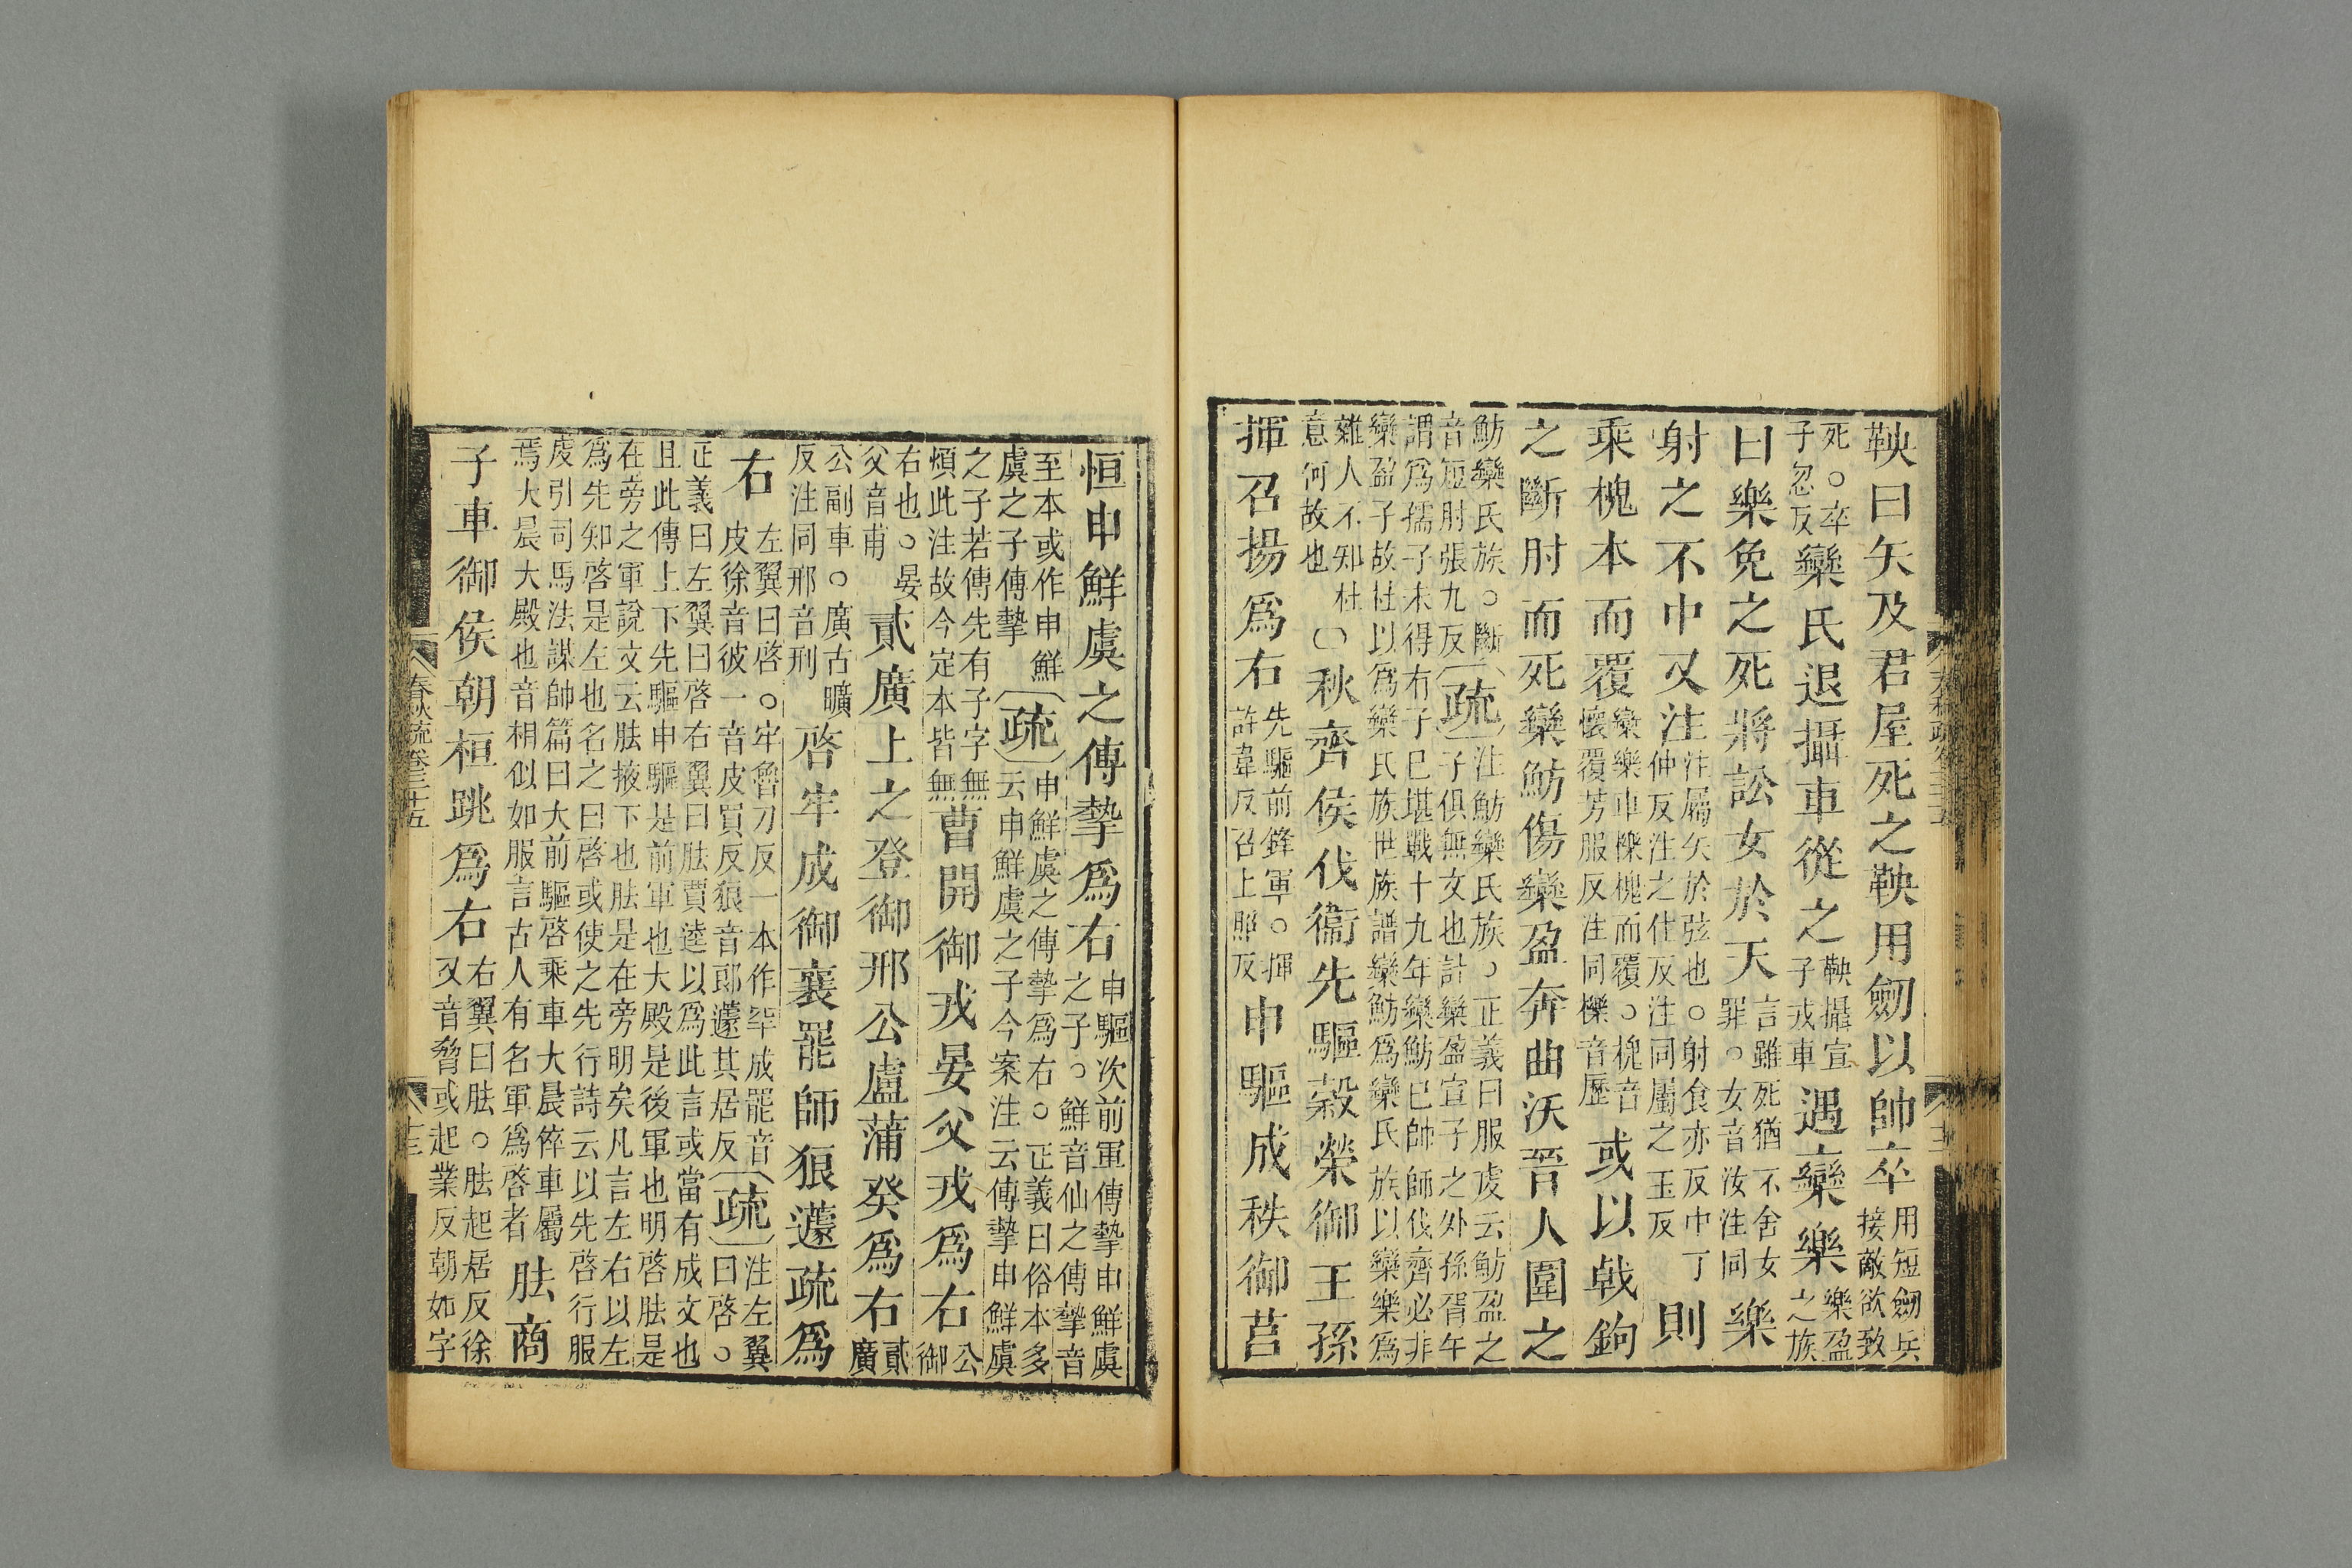 鞅曰矢及君屋死之鞅用劒以帥卒用短劒兵接敵欲致
死○卒子忽反欒氏退攝車從之鞅攝宣子戎車遇欒樂樂盈之族
曰樂免之死將訟女於天言雖死猶不舍女罪○女音汝注同樂
射之不中又注注屬矢於弦也○射食亦反中丁仲反注之住反注同屬之玉反則
乘槐本而覆欒樂車櫟槐而覆○槐音懷覆芳服反注同櫟音歷或以戟鉤
之斷肘而死欒魴傷欒盈奔曲沃晉人圍之
魴欒氏族○斷音短肘張九反疏注魴欒氏族○正義曰服虔云魴盈之子俱無文也計欒盈宣子之外孫胥午
謂爲孺子未得有子已堪戰十九年欒魴已帥師伐齊必非欒盈子故杜以爲欒氏族世族譜欒魴爲欒氏族以欒樂爲
雜人不知杜意何故也○秋齊侯伐衞先驅穀榮御王孫
揮召揚爲右先驅前鋒軍○揮許韋反召上照反申驅成秩御莒
恒申鮮虞之傅摯爲右申驅次前軍傅摯申鮮虞之子○鮮音仙之傅摯音
至本或作申鮮虞之子傅摯疏申鮮虞之傅摯爲右○正義曰俗本多云申鮮虞之子今案注云傅摯申鮮虞
之子若傳先有子字無煩此注故今定本皆無曹開御戎晏父戎爲右公御
右也○晏父音甫貳廣上之登御邢公盧蒲癸爲右貳廣
公副車○廣古曠反注同邢音刑啓牢成御襄罷師狼蘧疏爲
右左翼曰啓○牢魯刀反一本作罕成罷音皮徐音彼一音皮買反狼音郎蘧其居反疏注左翼曰啓○
正義曰左翼曰啓右翼曰胠賈逵以爲此言或當有成文也且此傳上下先驅申驅是前軍也大殿是後軍也明啓胠是
在旁之軍說文云胠掖下也胠是在旁明矣凡言左右以左爲先知啓是左也名之曰啓或使之先行詩云以先啓行服
虔引司馬法謀帥篇曰大前驅啓乘車大晨倅車屬焉大晨大殿也音相似如服言古人有名軍爲啓者胠商
子車御侯朝桓跳爲右右翼曰胠○胠起居反徐又音脅或起業反朝如字
春秋疏卷三十五
十三